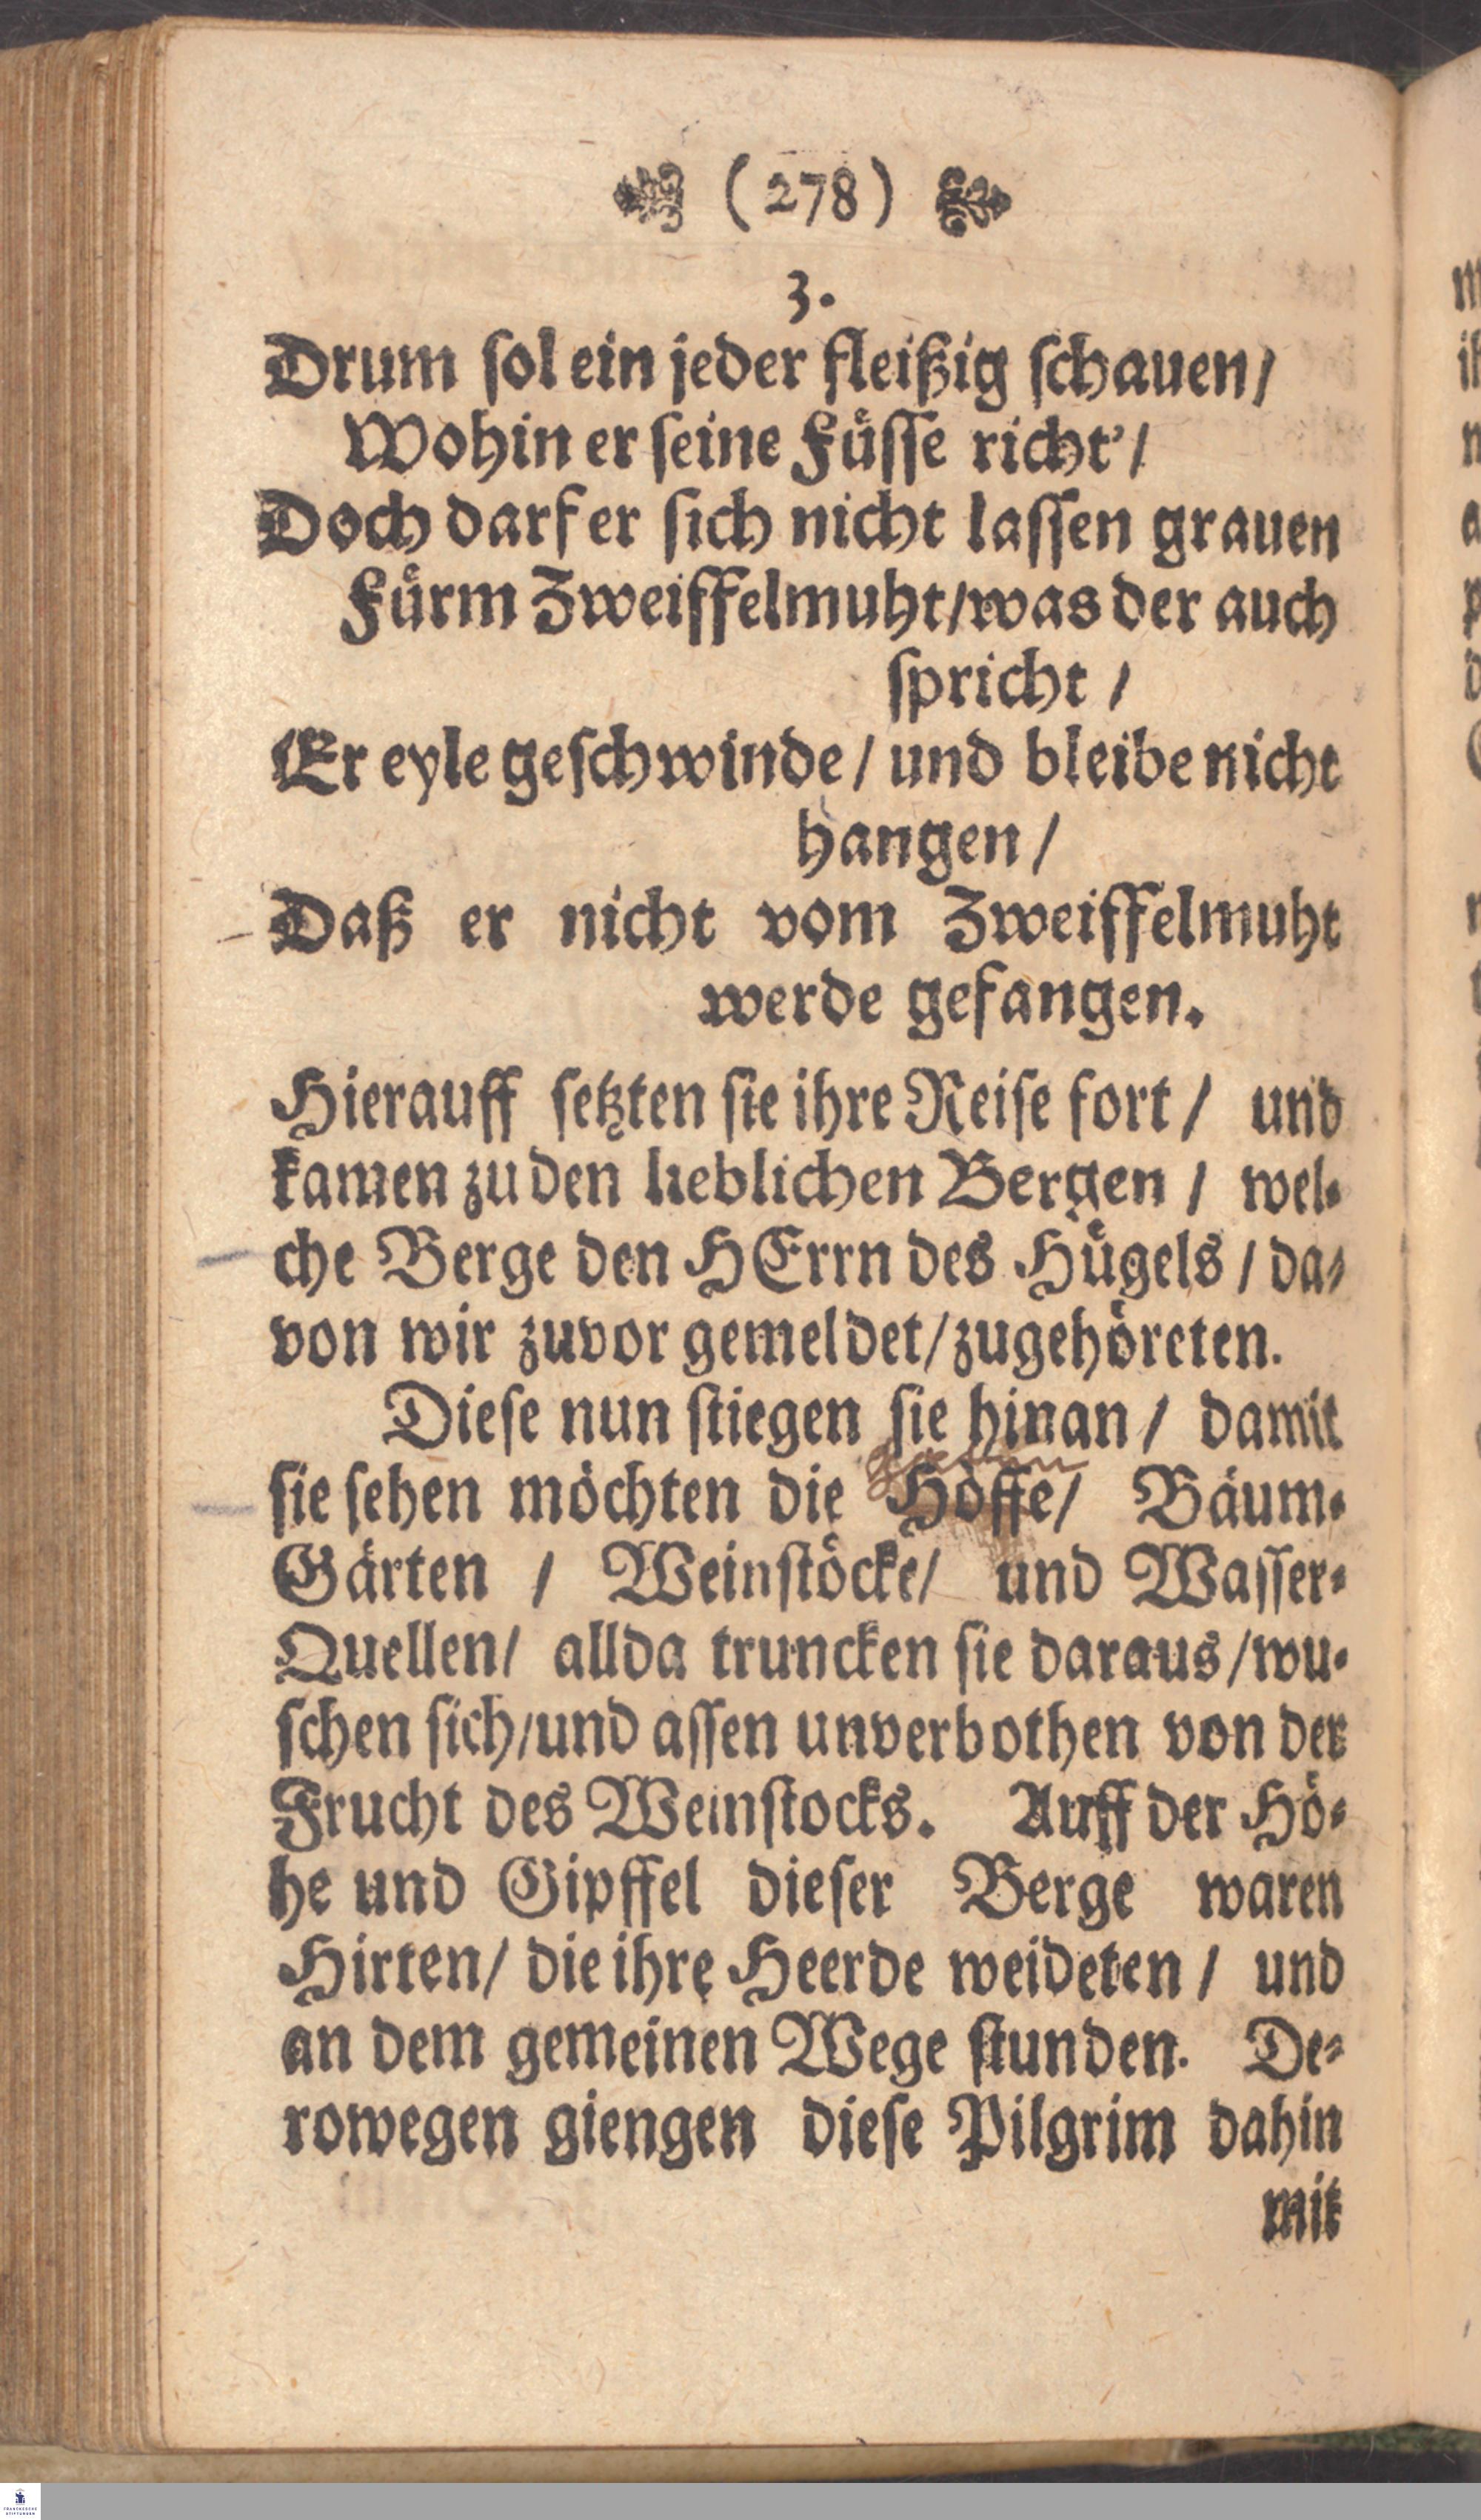 (278)
3.
Drum sol ein jeder fleißig schauen/
Wohin er seine Füsse richt'/
Doch darf er sich nicht lassen grauen
Fürm Zweiffelmuht/was der auch
spricht /
Er eyle geschwinde/ und bleibe nicht
hangen/
Daß er nicht vom Zweiffelmuht
werde gefangen.
Hierauff setzten sie ihre Reise fort / und
kamen zu den lieblichen Bergen / wel-
che Berge den HErrn des Hügels / da-
von wir zuvor gemeldet/zugehöreten.
Diese nun stiegen sie hinan / damit
sie sehen möchten die Höffe/ Bäum-
Gärten / Weinstöcke/ und Wasser-
Quellen/ allda truncken sie daraus/wu-
schen sich/und assen unverbothen von der
Frucht des Weinstocks. Auff der Hö-
he und Gipffel dieser Berge waren
Hirten/ die ihre Heerde weideten / und
an dem gemeinen Wege stunden. De-
rowegen giengen diese Pilgrim dahin
mit